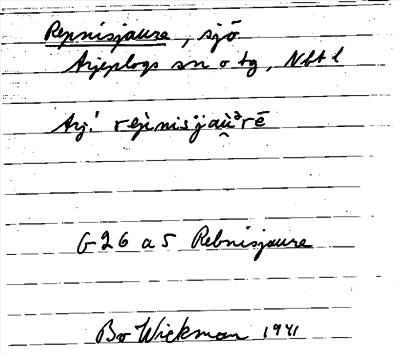 Repnisjaure, sjö
Arjeplogs sn o tg, Nbt l
Arj! rep̀nisjaù̯ᵊrē
G 26 a 5 Rebnisjaure
Bo Wickman 1941